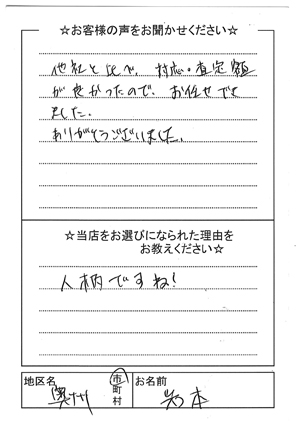 ☆お客様の声をお聞かせください☆
他社と比べ、対応・査定額
が良かったので、お任せでき
ました。
ありがとうございました。
☆当店をお選びになられた理由を
お教えください☆
人柄ですね!
地区名 奥州 市町村 お名前 岩本